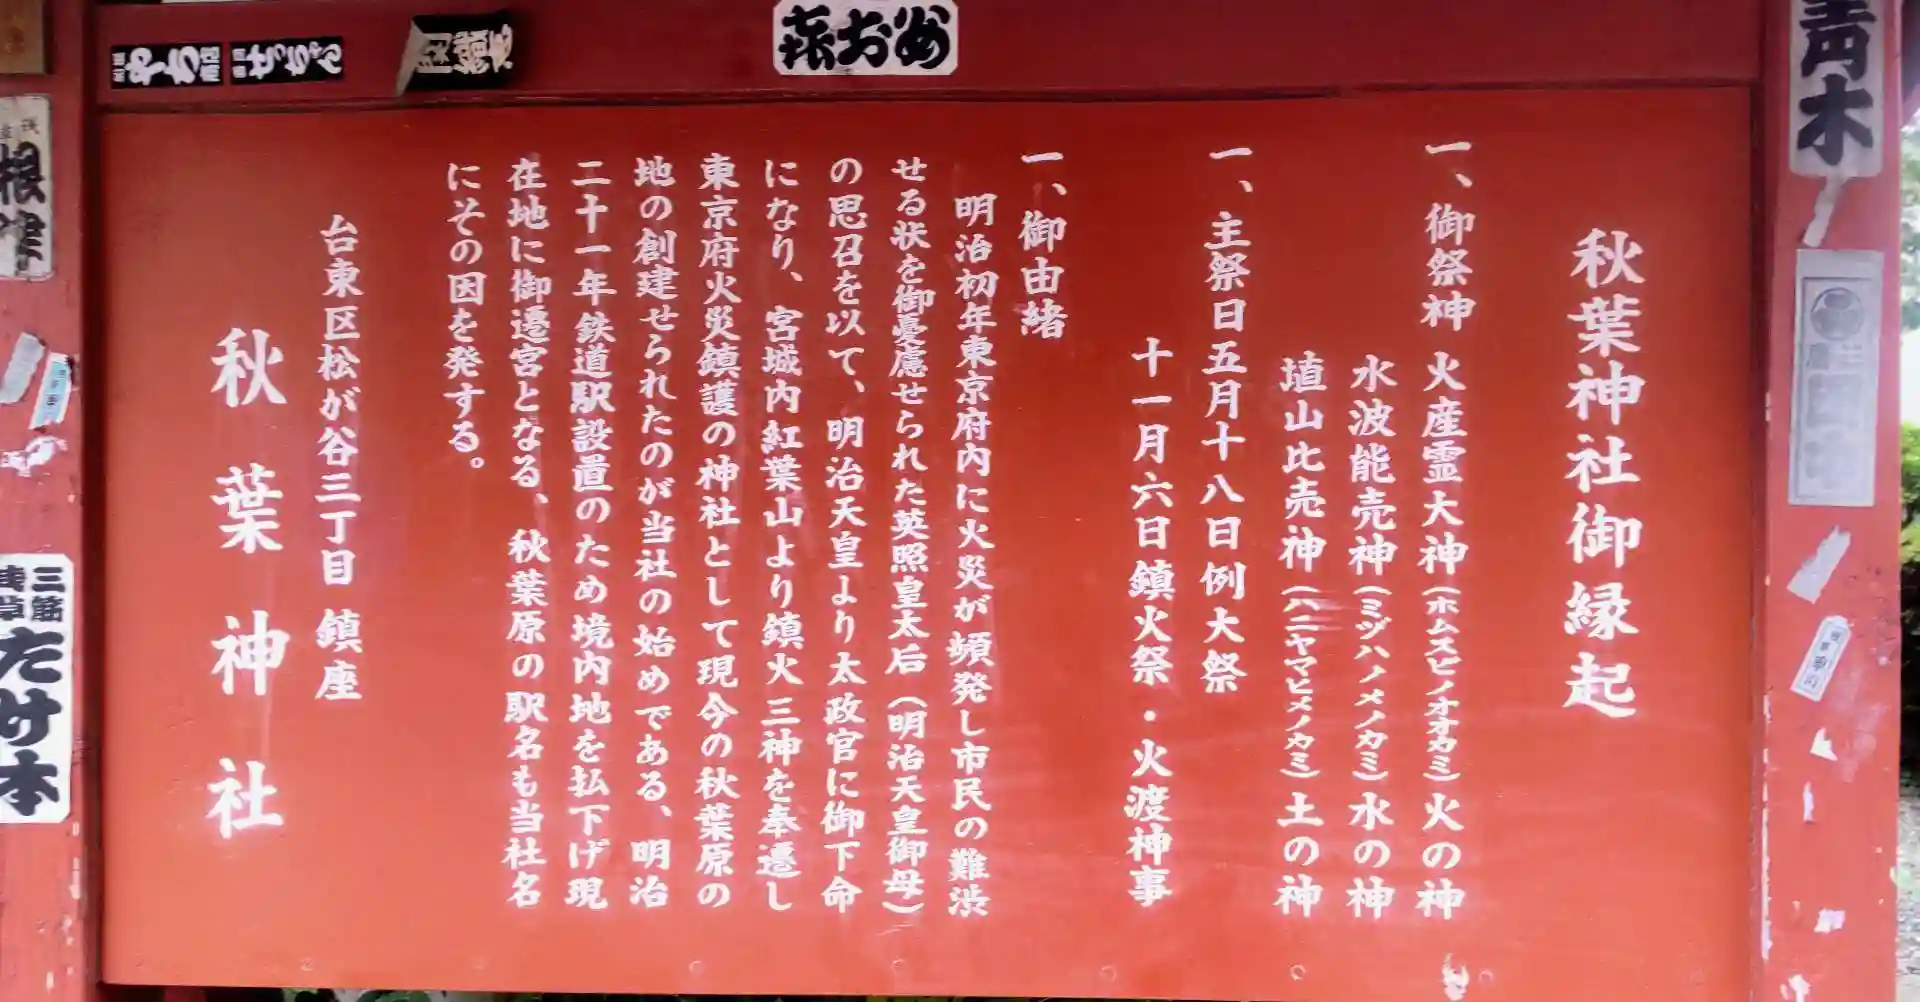 秋葉神社御縁起
一、御祭神 火産霊大神(ホムスビノオオカミ)火の神
水波能売神(ミヅハノメノカミ)水の神
埴山比売神(ハニヤマヒメノカミ)土の神
一、主祭日五月十八日例大祭
十一月六日鎮火祭・火渡神事
一、御由緒
明治初年東京府内に火災が頻発し市民の難渋
せる状を御憂慮せられた英照皇太后(明治天皇御母)
の思召を以て、明治天皇より太政官に御下命
になり、宮城内紅葉山より鎮火三神を奉遷し
東京府火災鎮護の神社として現今の秋葉原の
地の創建せられたのが当社の始めである、明治
二十一年鉄道駅設置のため境内地を払下げ現
在地に御遷宮となる、秋葉原の駅名も当社名
にその因を発する。
台東区松が谷三丁目 鎮座
秋葉神社
青木
根津
三筋
浅草
たけ本